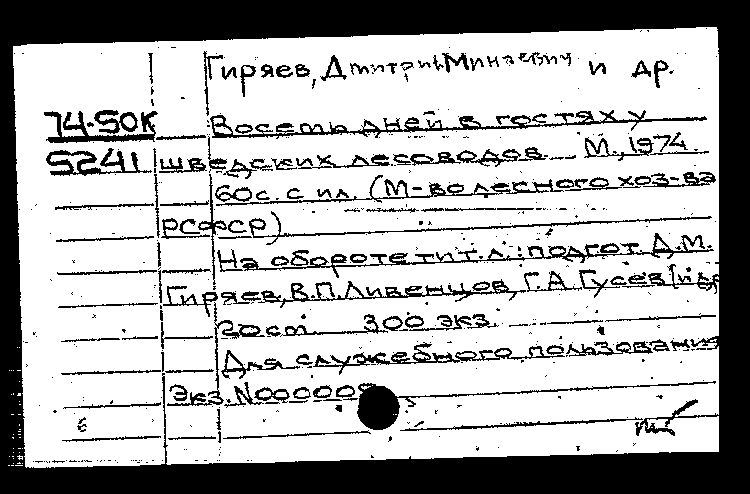 Гиряев, Дмитрий Минаевич и др.
74-50К Восемь дней в гостях у
5241 шведских лесоводов М., 1974.
60с. с ил. (М-во лесного хоз-ва
РСФСР)
На обороте тит.л.: подгот. Д.М.
Гиряев, В.П. Ливенцов, Г.А. Гусев [и др
20см. 300 экз.
Для служебного пользования
Экз. N000009
6